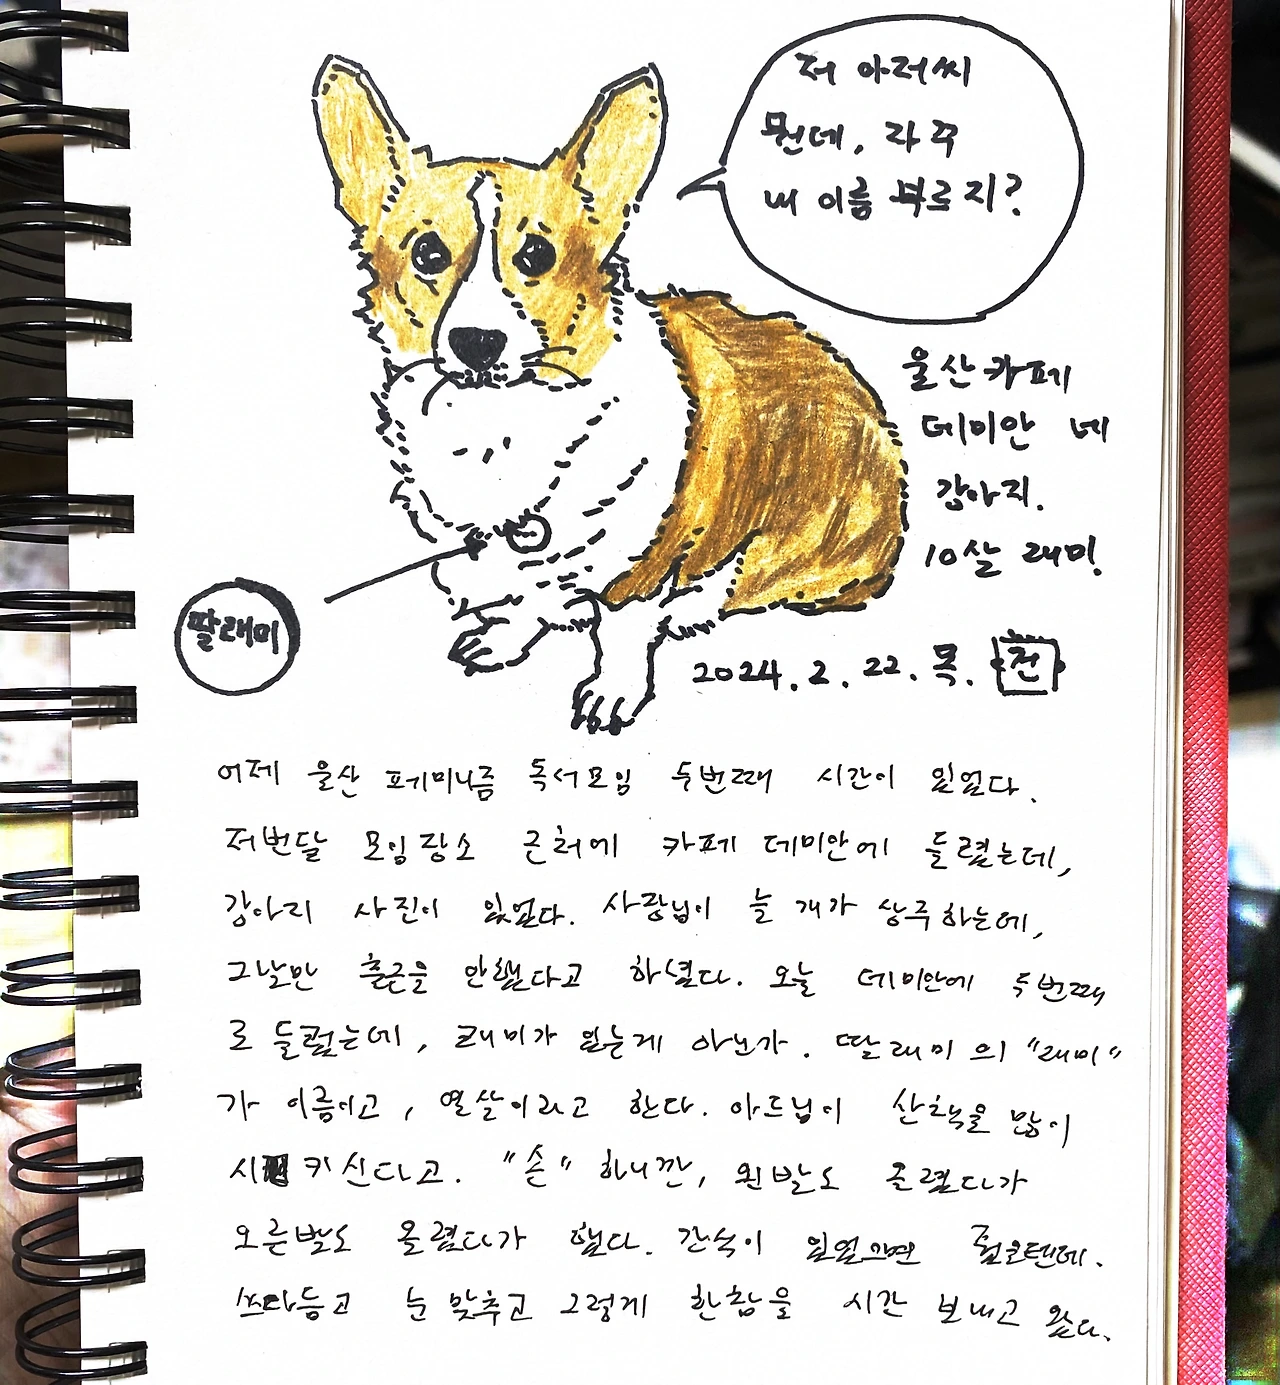 저 아저씨
뭔데, 자꾸
내 이름 부르지?
울산 카페
데미안 네
강아지.
10살 래미!
딸래미
2024. 2. 22. 목. 전
어제 울산 페미니즘 독서모임 두번째 시간이 있었다.
저번달 모임장소 근처에 카페 데미안에 들렸는데,
강아지 사진이 있었다. 사장님이 늘 개가 상주하는데,
그날만 출근을 안했다고 하셨다. 오늘 데미안에 두번째
로 들렸는데, 래미가 있는게 아닌가. 딸래미의 "래미"
가 이름이고, 열살이라고 한다. 아드님이 산책을 많이
시키신다고. "손" 하니깐, 왼발도 올렸다가
오른발도 올렸다가 했다. 간식이 있었으면 줬을텐데.
쓰다듬고 눈 맞추고 그렇게 한참을 시간 보내고 왔다.